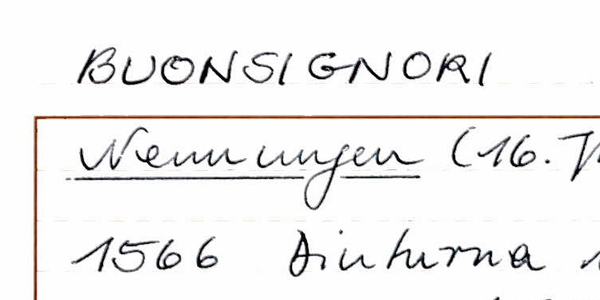 BUONSIGNORI
Nennungen (16. J
1566 Diuturna